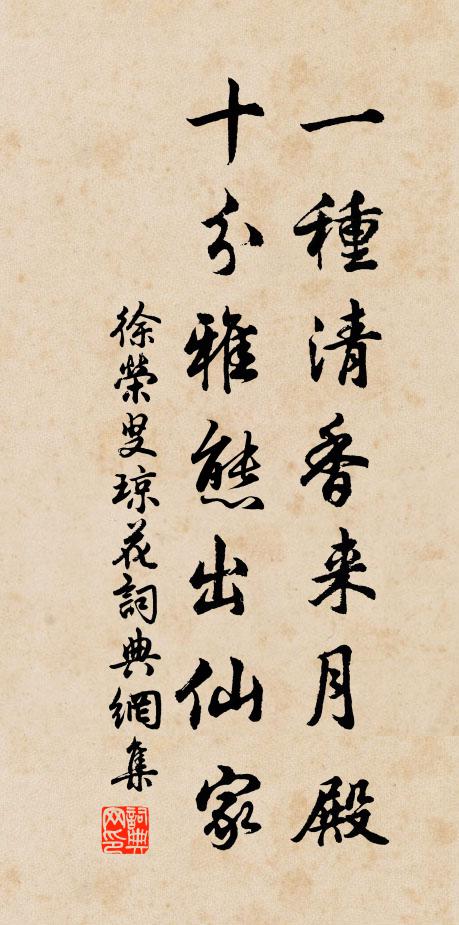 一種清香来月殿
十分雅態出仙家
徐榮叟琼花詞典網集
詞典网印